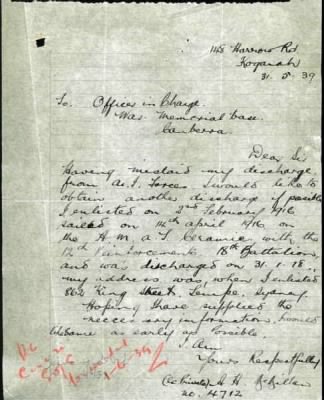 148 Harrow Rd
Kogarah
31. 5. 39
To Officer in Charge.
War Memorial base.
Canberra.
Dear Sir
Having mislaid my discharge
from A.I. Forces I would like to
obtain another discharge if possible
I enlisted on 2nd February 1916
sailed on 14th april 1916 on
the H M a T Ceramic with the
12th Reinforcements 18th Battalion,
and was discharged on 31. 1. 18.,
my address was, when I enlisted
862 King street, Tempe, Sydney
Hoping I have supplied the
neccessary information, would
like same as early as Possible.
I Am
Yours Respectfully
A. H.
no. 4712
1-6-39